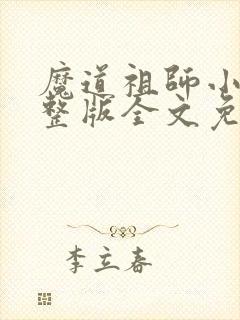 魔道祖師小
整版全文免
李立春